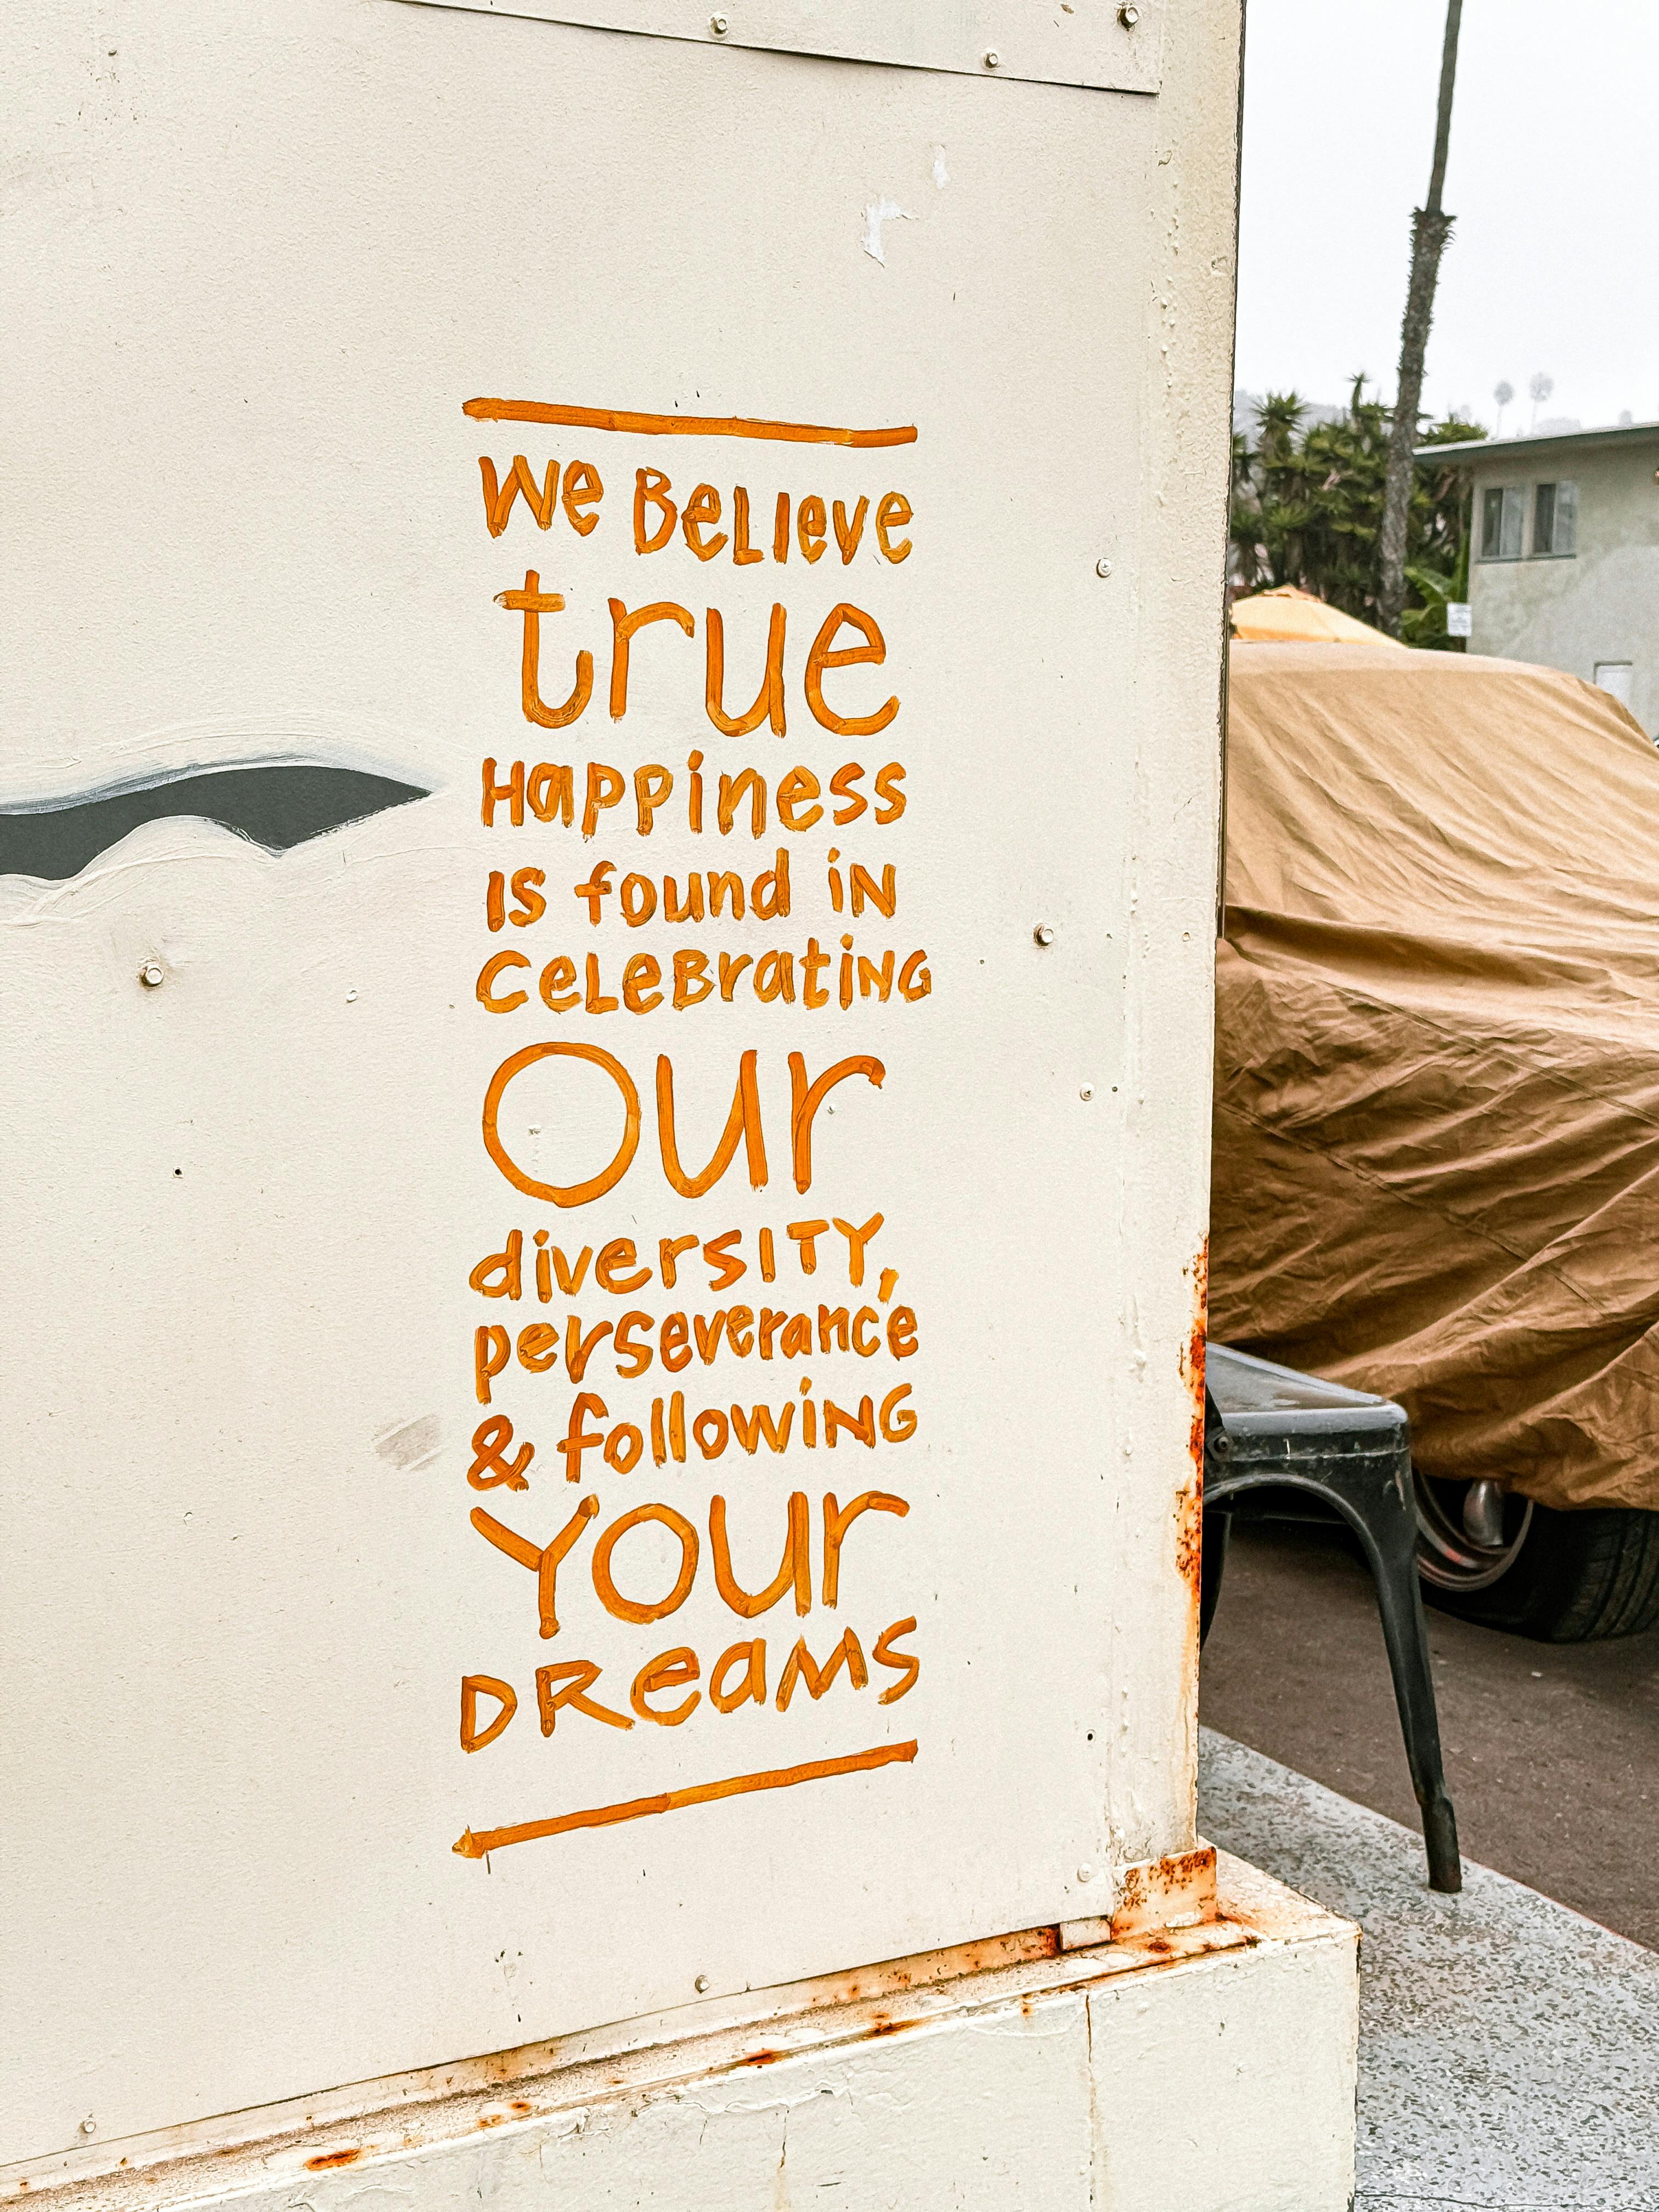 We BeLIeve
true
Happiness
IS found iN
CeLeBratiNG
Our
diversITY,
perseverance
& followiNG
Your
DReaMS